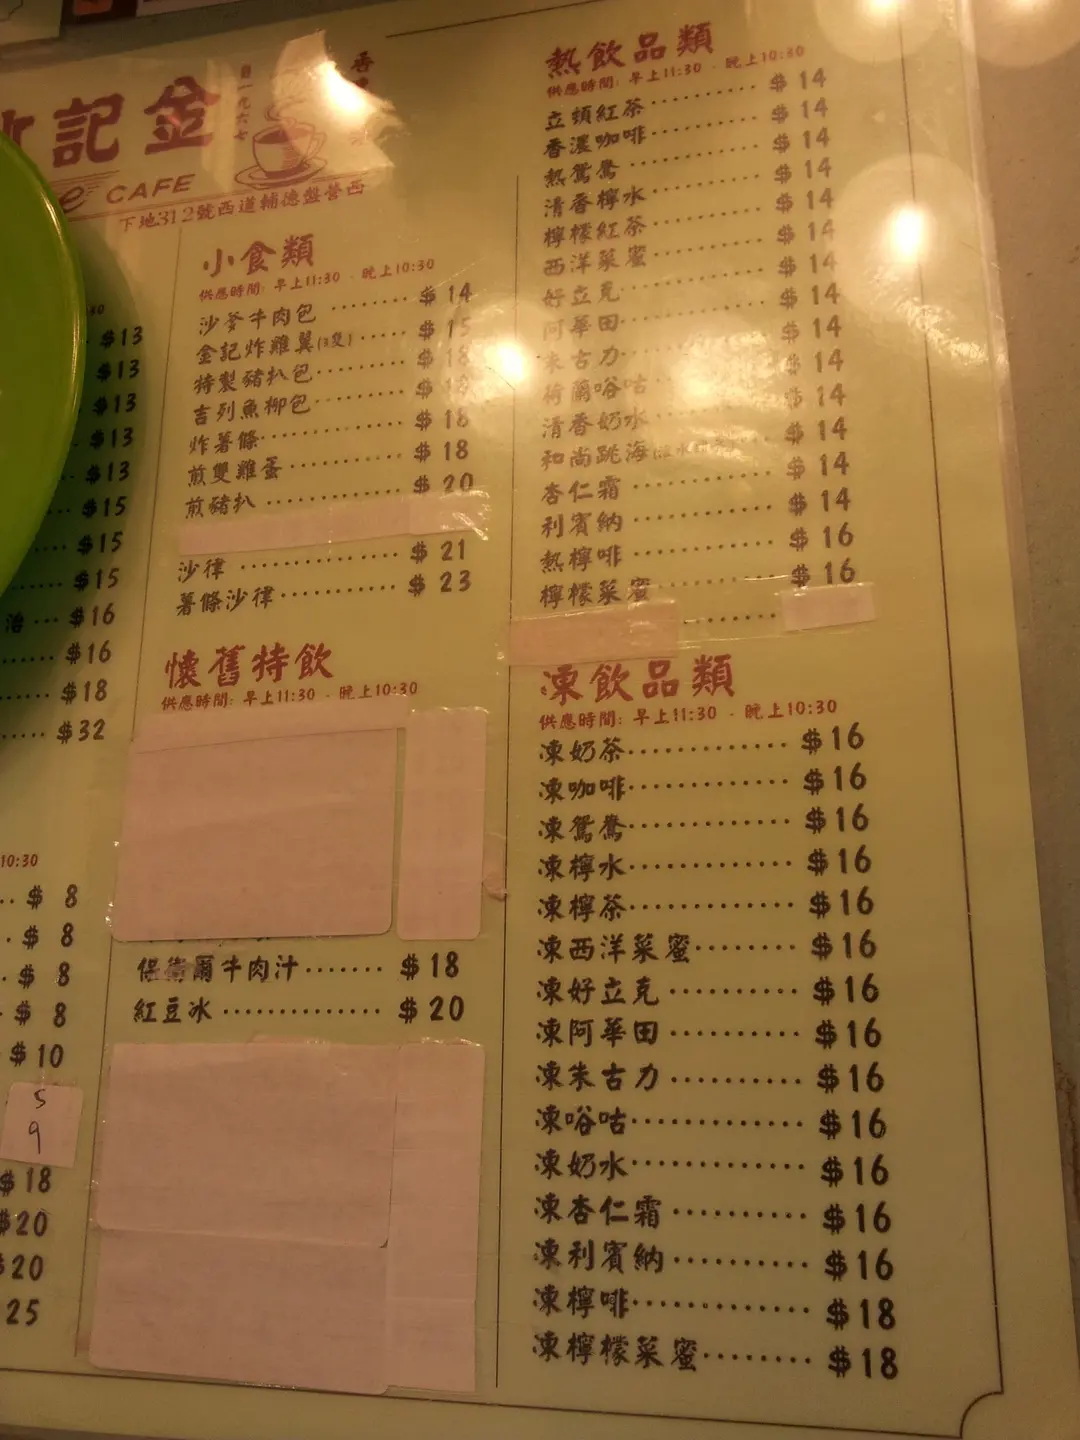 金記
創一九六七
CAFE
西營盤德輔道西312號地下
10:30
$13
$13
$13
$13
$13
$15
$15
$15
$16
$16
$18
$32
10:30
$ 8
$ 8
$ 8
$ 8
$10
5
9
$18
$20
$20
25
小食類
供應時間: 早上11:30 - 晚上10:30
沙爹牛肉包 $ 14
金記炸雞翼(3隻) $ 15
特製豬扒包 $ 18
吉列魚柳包 $
炸薯條 $ 18
煎雙雞蛋 $ 18
煎豬扒 $ 20
沙律 $ 21
薯條沙律 $ 23
懷舊特飲
供應時間: 早上11:30 - 晚上10:30
保衛爾牛肉汁 $ 18
紅豆冰 $ 20
熱飲品類
供應時間: 早上11:30 - 晚上10:30
立頓紅茶 $ 14
香濃咖啡 $ 14
熱鴛鴦 $ 14
清香檸水 $ 14
檸檬紅茶 $ 14
西洋菜蜜 $ 14
好立克 $ 14
阿華田 $ 14
朱古力 $ 14
荷爾唂咕 $ 14
清香奶水 $ 14
和尚跳海 $ 14
杏仁霜 $ 14
利賓納 $ 14
熱檸啡 $ 16
檸檬菜蜜 $ 16
凍飲品類
供應時間: 早上11:30 - 晚上10:30
凍奶茶 $16
凍咖啡 $16
凍鴛鴦 $16
凍檸水 $16
凍檸茶 $16
凍西洋菜蜜 $16
凍好立克 $16
凍阿華田 $16
凍朱古力 $16
凍唂咕 $16
凍奶水 $16
凍杏仁霜 $16
凍利賓納 $16
凍檸啡 $18
凍檸檬菜蜜 $18